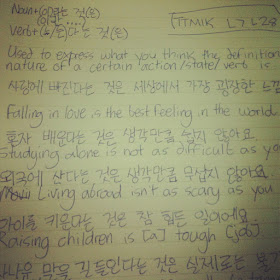 Noun+(이)라는 것(은)
(이)란 .....)
Verb+(ㄴ/는)다는 것(은)
TTMIK L7 L28
Used to express what you think the definition
nature of a certain action/state/verb is
사랑에 빠진다는 것은 세상에서 가장 굉장한 느낌
Falling in love is the best feeling in the world.
혼자 배운다는 것은 생각만큼 쉽지 않아요.
Studying alone is not as difficult as you
외국에 산다는 것은 생각만큼 무섭지 않아요.
Living abroad isn't as scary as you
아이를 키운다는 것은 참 힘든 일이에요.
Raising children is [a] tough [job].
말을 길들인다는 것은 실제로는